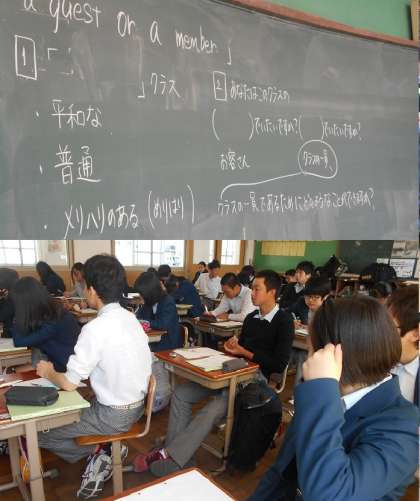 a guest or a member 」
1 「
」クラス
・平和な
・普通
・メリハリのある (めりはり)
2 あなたはこのクラスの
( )でいたいですか?( )でいたいですか?
お客さん クラスの一員
クラスの一員であるためにどのようなことができますか?